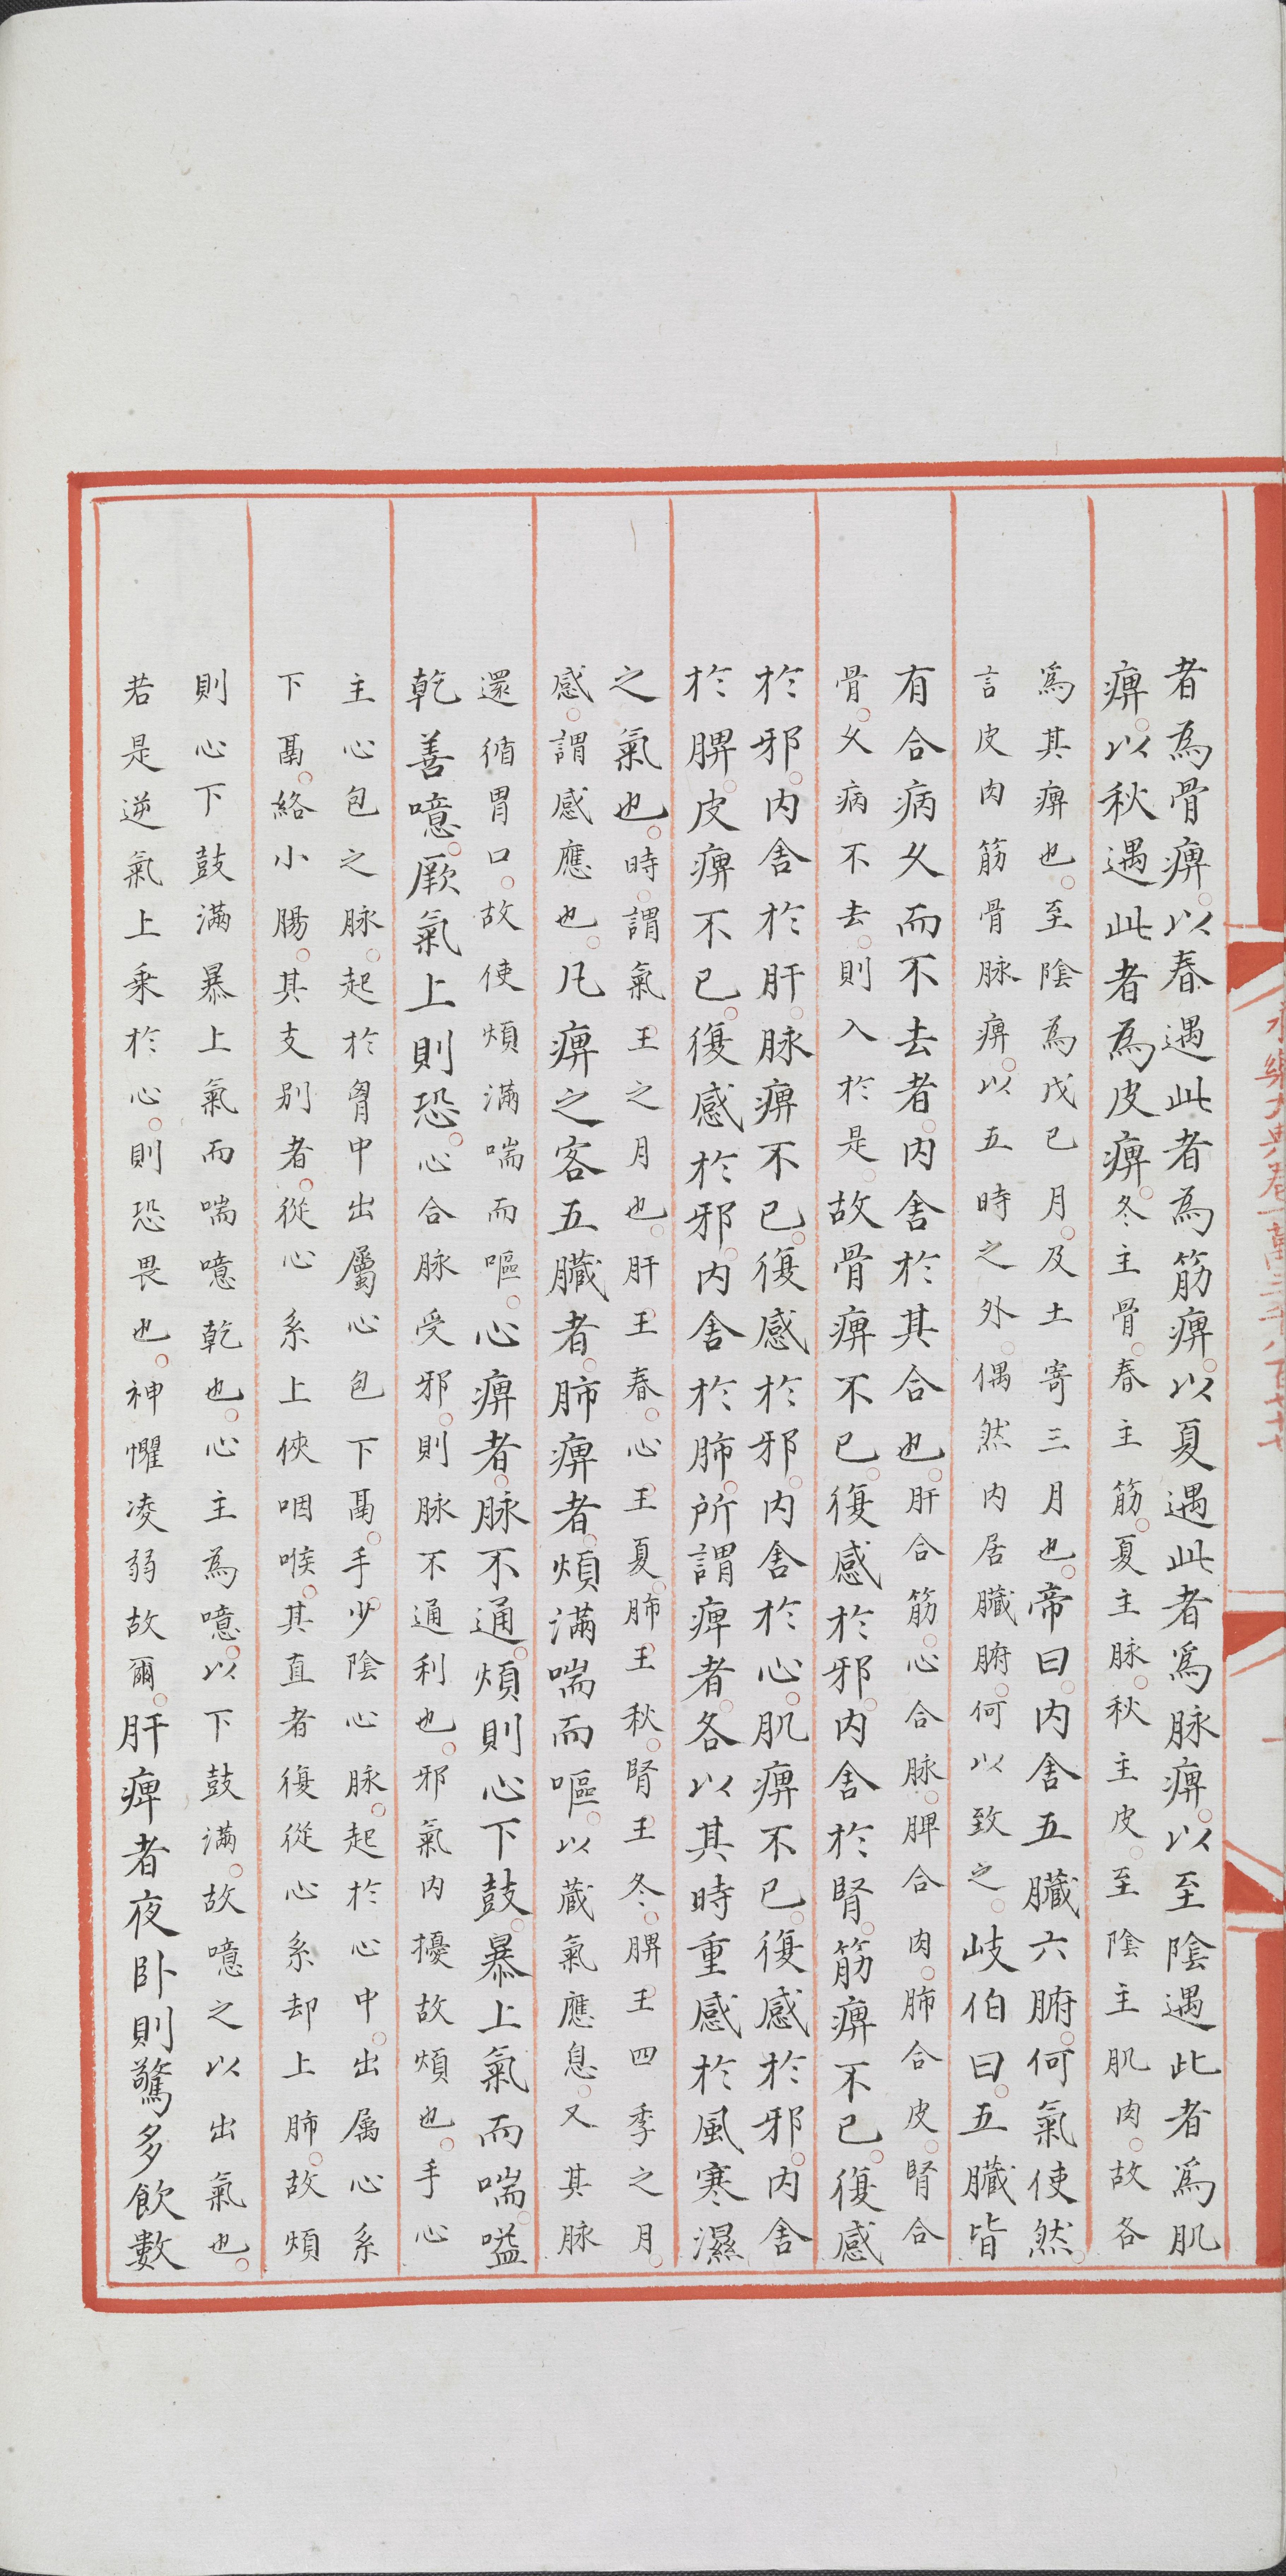 者為骨痹。以春遇此者為筋痹。以夏遇此者爲脉痹。以至陰遇此者爲肌
痹。以秋遇此者為皮痹。冬主骨。春主筋。夏主脉。秋主皮。至陰主肌肉。故各
爲其痹也。至陰為戊已月。及土寄三月也。帝曰。内舍五臓六腑。何氣使然。
言皮肉筋骨脉痹。以五時之外。偶然内居臓腑。何以致之。岐伯曰。五臓皆
有合病乆而不去者。内舍於其合也。肝合筋。心合脉。脾合肉。肺合皮。腎合
骨。乆病不去。則入於是。故骨痹不已。復感於邪。内舍於腎。筋痹不已。復感
於邪。内舍於肝。脉痹不已。復感於邪。内舍於心。肌痹不已。復感於邪。内舍
於脾。皮痹不已。復感於邪。内舍於肺。所謂痺者。各以其時重感於風寒濕
之氣也。時。謂氣王之月也。肝王春。心王夏。肺王秋。腎王冬。脾王四季之月。
感。謂感應也。凡痹之客五臓者。肺痹者。煩滿喘而嘔。以蔵氣應息。又其脉
還循胃口。故使煩滿喘而嘔。心痹者。脉不通。煩則心下鼓。暴上氣而喘。嗌
乾善噫。厥氣上則恐。心合脉受邪。則脉不通利也。邪氣内擾故煩也。手心
主心包之脉。起於胷中出屬心包下鬲。手少陰心脉。起於心中。出属心系
下鬲。絡小腸。其支别者。從心系上俠咽喉。其直者復從心系却上肺。故煩
則心下鼓滿暴上氣而喘噫乾也。心主為噫。以下鼓滿。故噫之以出氣也。
若是逆氣上乗於心。則恐畏也。神懼凌弱故爾。肝痺者夜卧則驚多飲數
永樂大典卷一萬三千八百七十